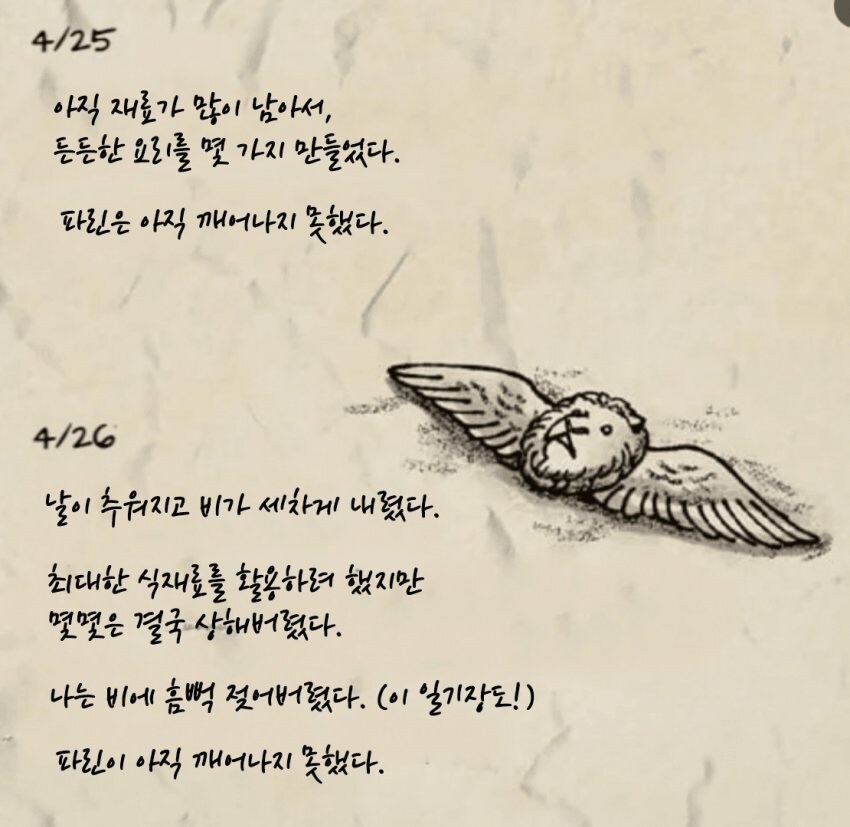 4/25
아직 재료가 많이 남아서,
든든한 요리를 몇 가지 만들었다.
파린은 아직 깨어나지 못했다.
4/26
날이 추워지고 비가 세차게 내렸다.
최대한 식재료를 활용하려 했지만
몇몇은 결국 상해버렸다.
나는 비에 흠뻑 젖어버렸다. (이 일기장도!)
파린이 아직 깨어나지 못했다.